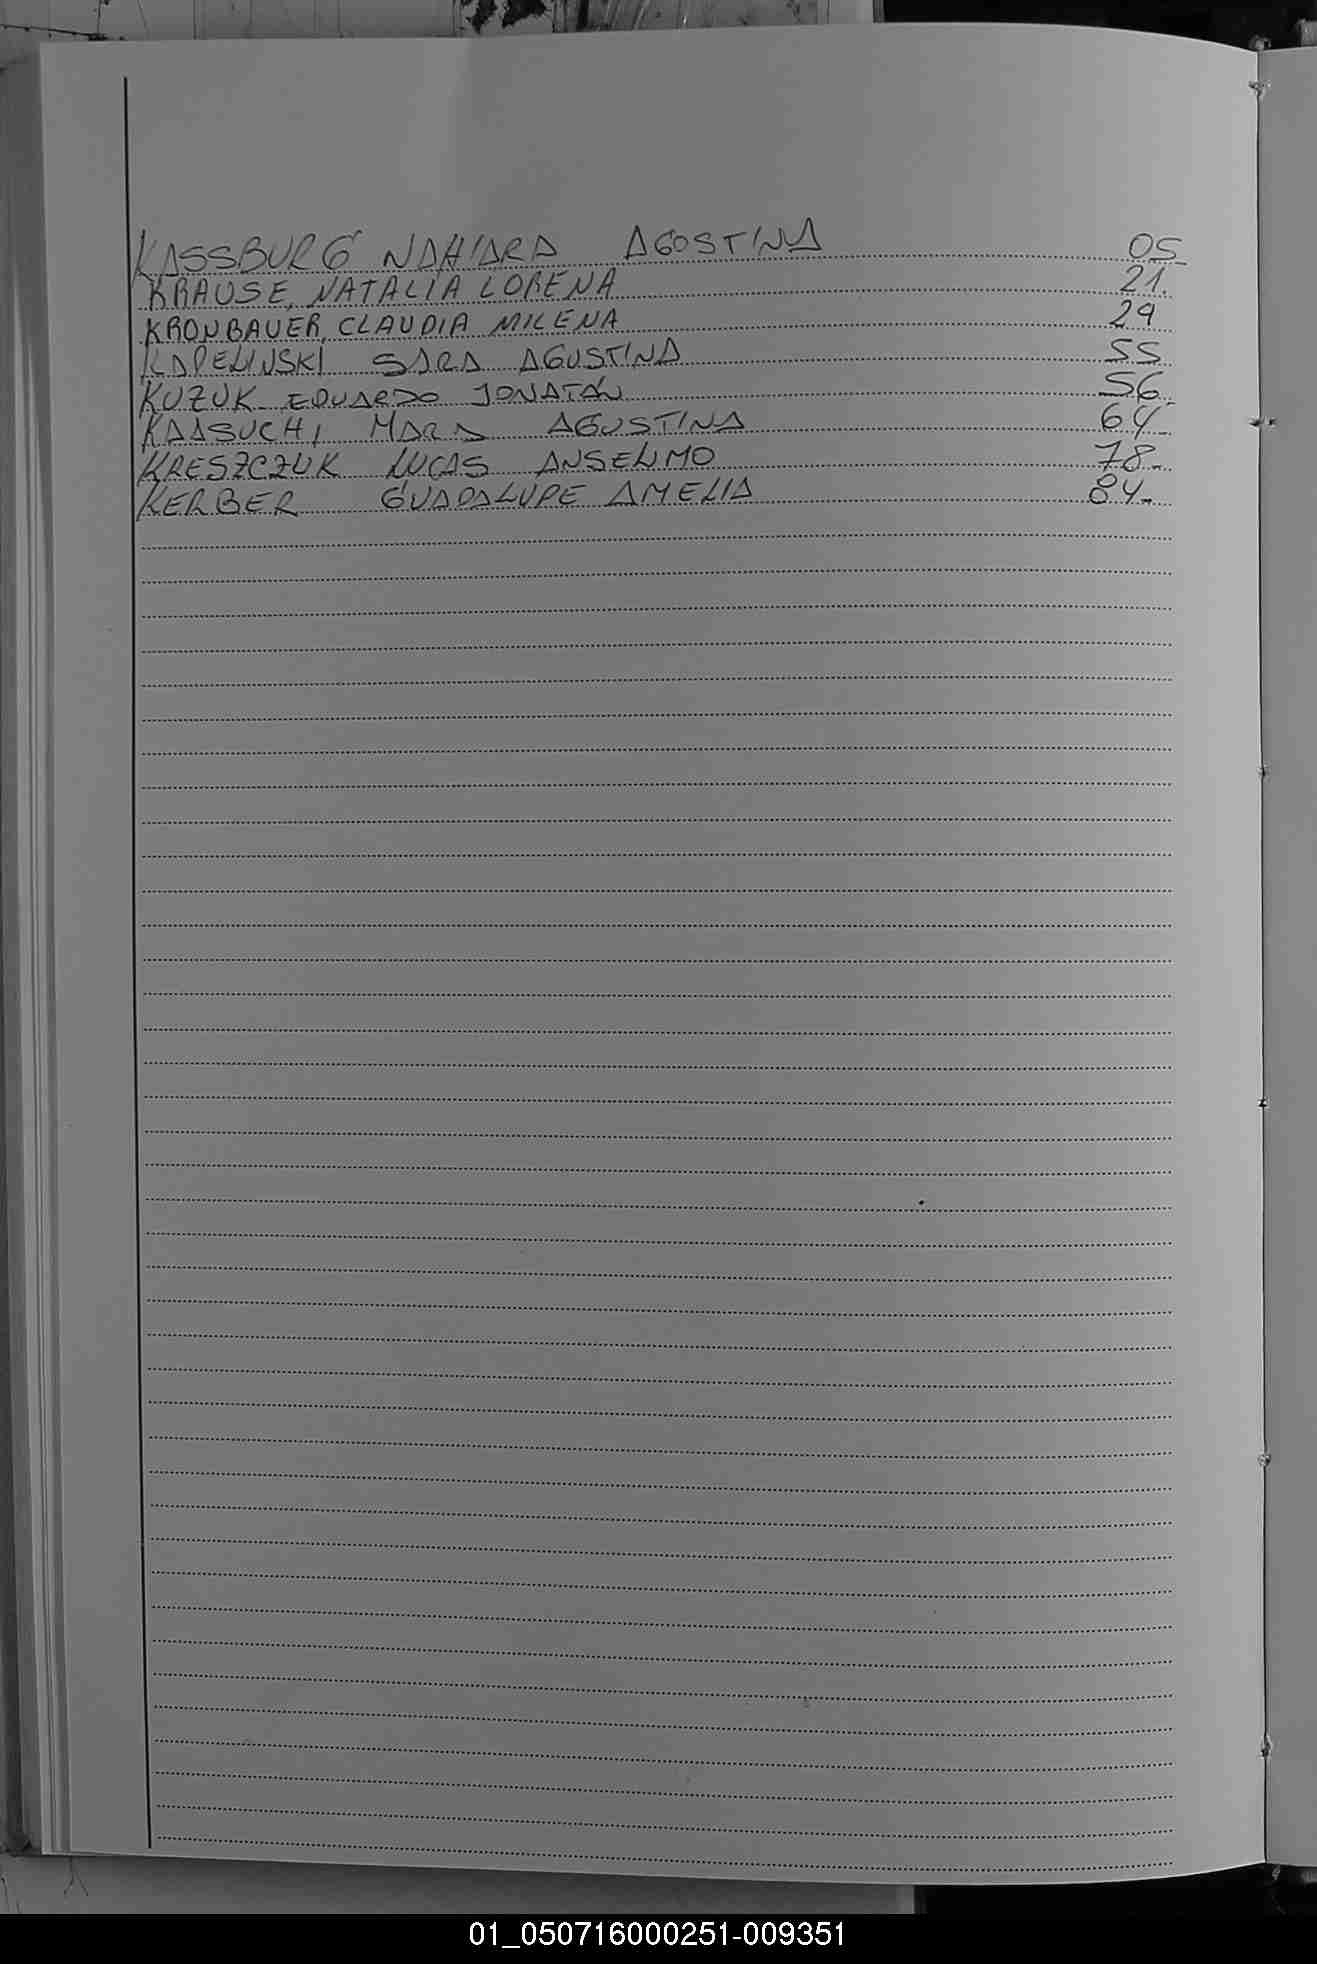 KASSBURG NAHIARA AGOSTINA 05
KRAUSE, NATALIA LORENA 21.
KRONBAUER, CLAUDIA MILENA 29
KAPELINSKI SARA AGUSTINA 55
KUZUK EDUARDO JONATÁN 56
KAASUCHI MARA AGUSTINA 64
KRESZCZUK LUCAS ANSELMO 78.
KERBER GUADALUPE AMELIA 84.
01_050716000251-009351